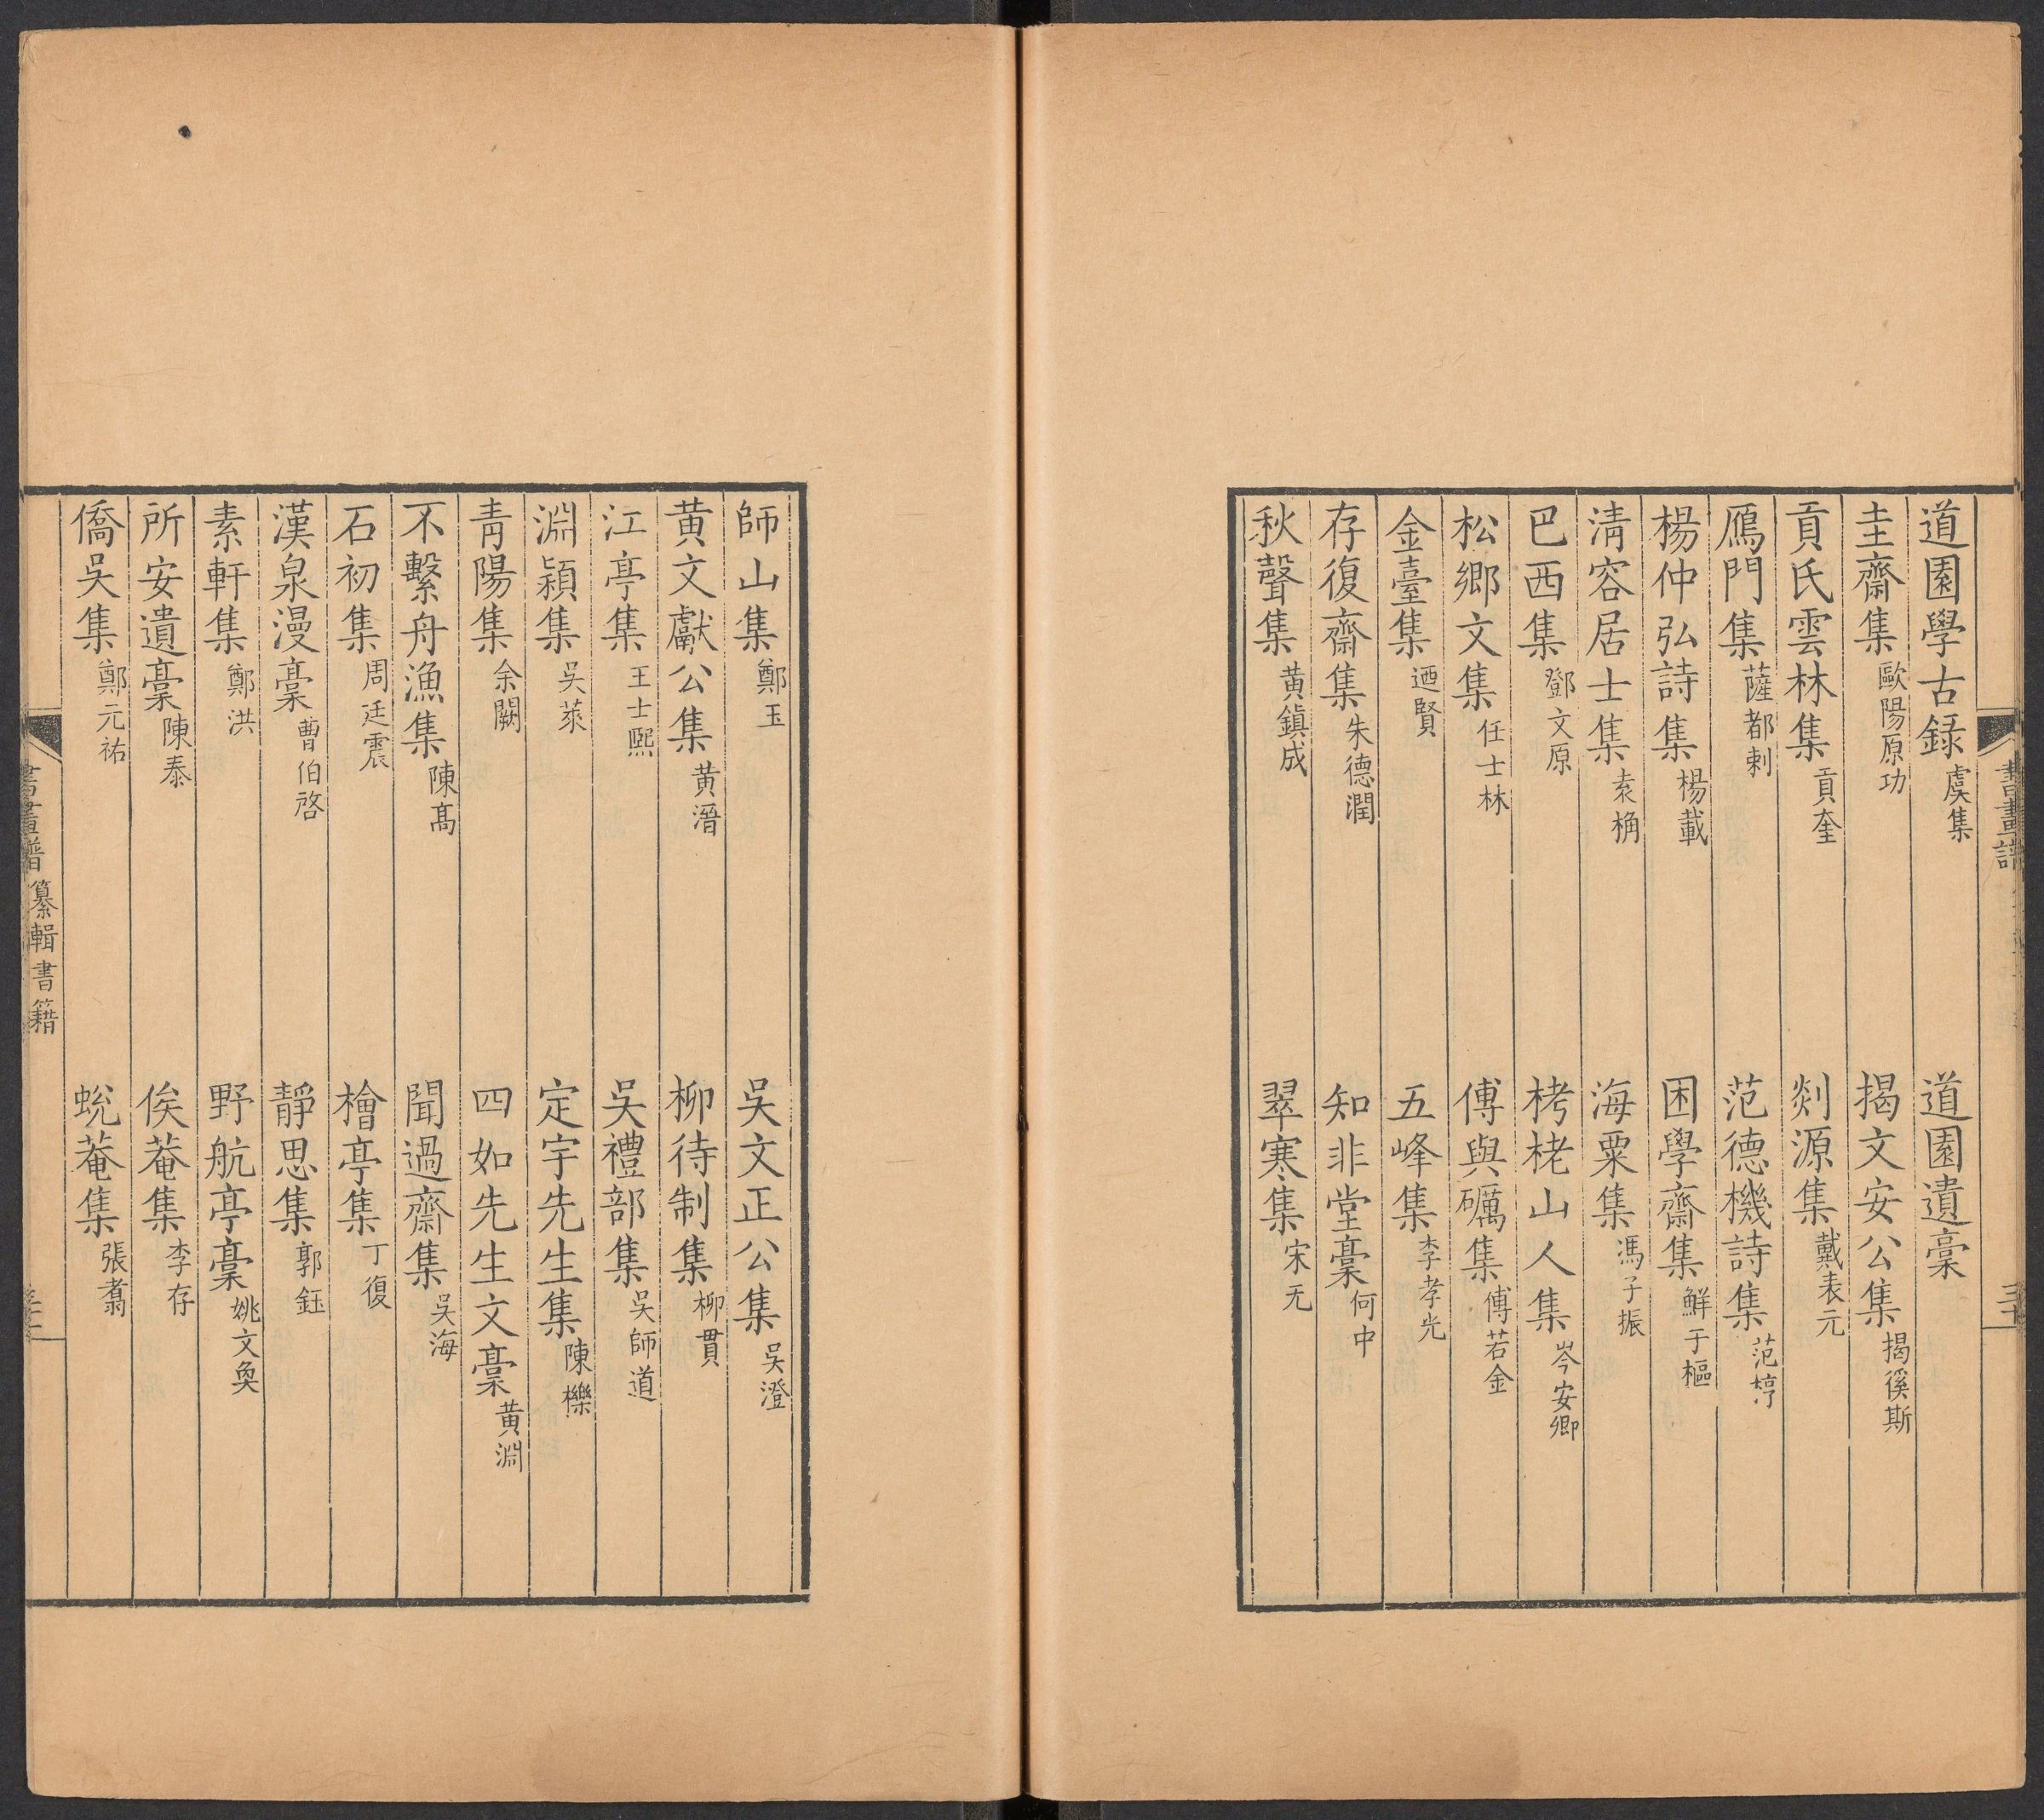 書畫譜
道園學古録 虞集 道園遺稾
圭齋集 歐陽原功 揭文安公集 揭徯斯
貢氏雲林集 貢奎 剡源集 戴表元
鴈門集 薩都剌 范德機詩集 范梈
楊仲弘詩集 楊載 困學齋集 鮮于樞
淸容居士集 袁桷 海粟集 馮子振
巴西集 鄧文原 栲栳山人集 岑安卿
松鄉文集 任士林 傅與礪集 傅若金
金臺集 迺賢 五峰集 李孝光
存復齋集 朱德潤 知非堂稾 何中
秋聲集 黄鎭成 翠寒集 宋无
師山集 鄭玉 吳文正公集 吳澄
黄文獻公集 黄溍 柳待制集 柳貫
江亭集 王士熈 吳禮部集 吳師道
淵穎集 吳萊 定宇先生集 陳櫟
靑陽集 余闕 四如先生文稾 黄淵
不繫舟漁集 陳高 聞過齋集 吳海
石初集 周廷震 檜亭集 丁復
漢泉漫稾 曹伯啓 靜思集 郭鈺
素軒集 鄭洪 野航亭稾 姚文奐
所安遺稾 陳泰 俟菴集 李存
僑吳集 鄭元祐 蛻菴集 張翥
書畫譜 纂輯書籍